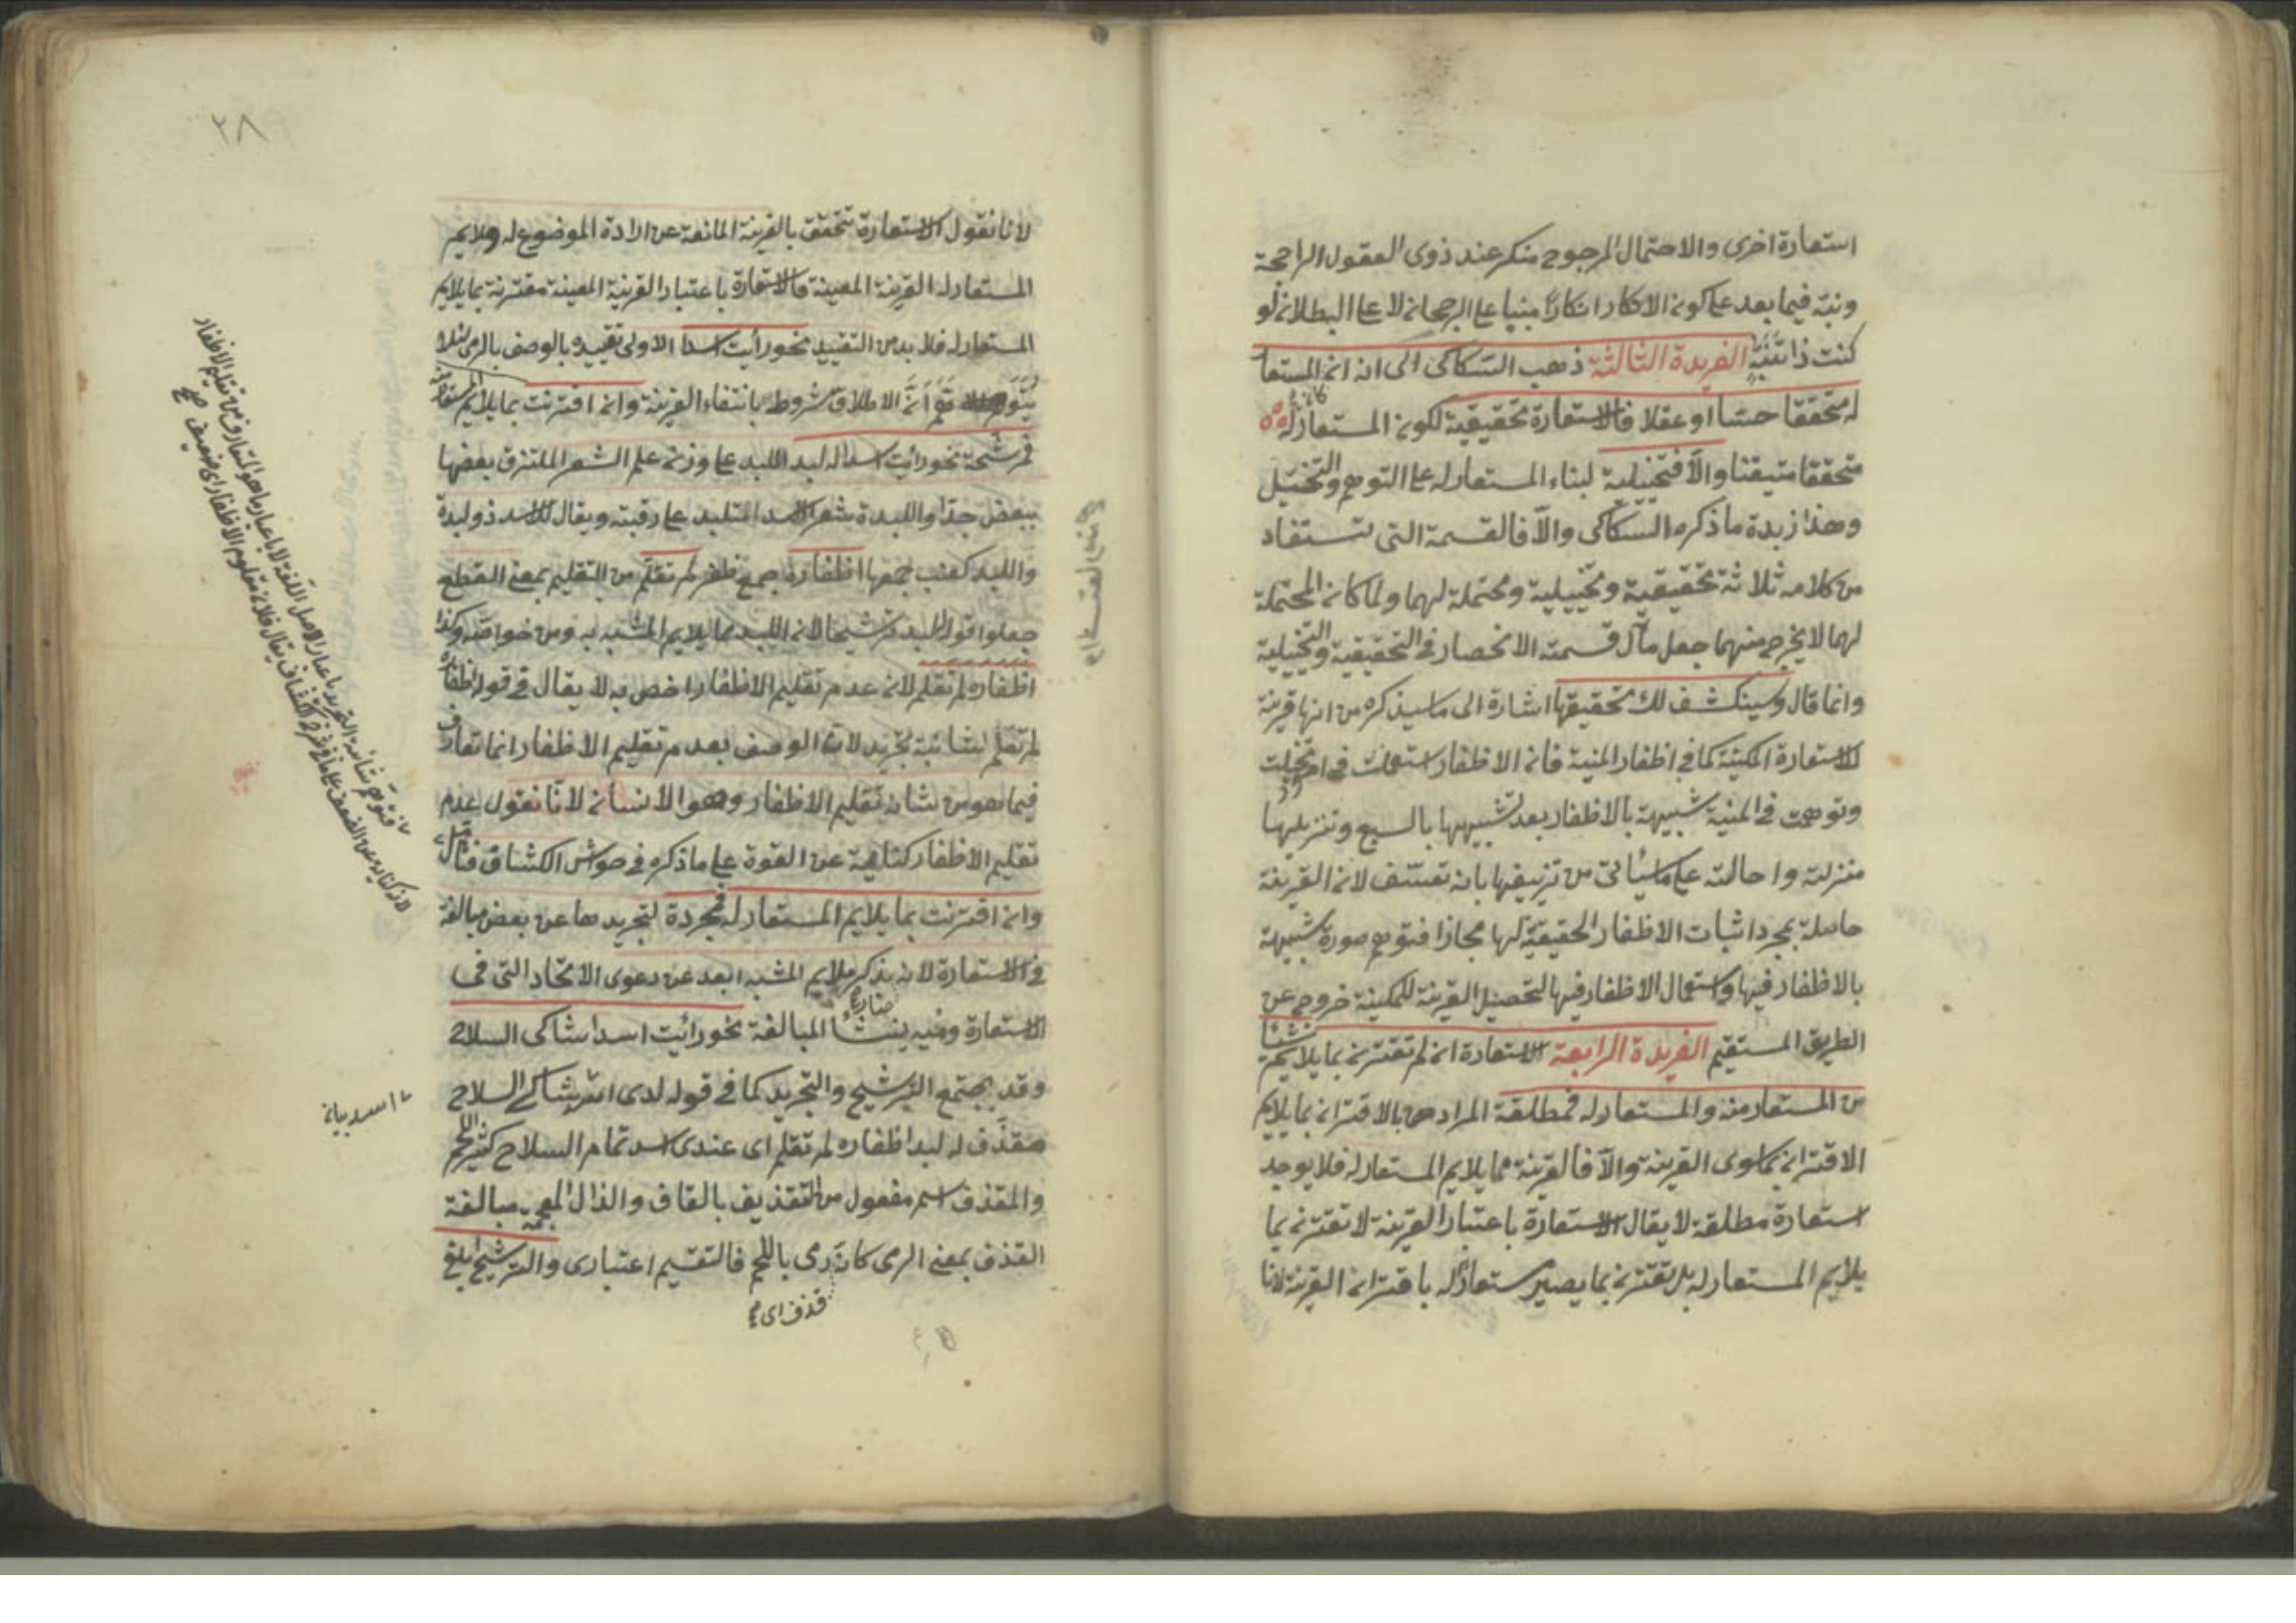 استعارة اخرى والاحتمال المرجوح منكر عند ذوى العقول الراجحة
ونبّه فيما بعد على كونه الانكار انكارًا مبنيا على الرجحان لا على البطلان لو
كنت ذا تنبّه الفريدة الثالثة ذهب السكاكى الى انه ان المستعا
له متحققا حسّا او عقلا فالاستعارة تحقيقية لكون المستعار له
كان
متحققا متيقنا والّا فتخييلية لبناء المستعار له على التوهم والتخييل
وهذا زبدة ما ذكره السكاكى والّا فالقسمة التى تستفاد
من كلامه ثلاثة تحقيقية وتخييلية ومحتملة لهما ولما كان المحتملة
لهما لا يخرج منهما جعل مآل قسمته الانحصار فى التحقيقية والتخييلية
وانما قال وسينكشف لك تحقيقها اشارة الى ما سيذكره من انها قرينة
الاستعارة المكنية كما فى اظفار المنية فان الاظفار استعملت فى امور تخيلت
وتوهمت فى المنية شبيهة بالاظفار بعد تشبيهها بالسبع وتنزيلها
منزلته واحالته على ما سيأتى من تزييفها بانه تعسّف لان القرينة
حاصلة بمجرد اثبات الاظفار الحقيقية لها مجازا فتوهم صورة شبيهة
بالاظفار فيها واستعمال الاظفار فيها لتحصيل القرينة للمكنية خروج عن
الطريق المستقيم الفريدة الرابعة الاستعارة ان لم تقترن بما يلايم شيئا
من المستعار منه والمستعار له فمطلقة المراد بالاقتران بما يلايم
الاقتران بما سوى القرينة والّا فالقرينة مما يلايم المستعار له فلا يوجد
استعارة مطلقة لا يقال الاستعارة باعتبار القرينة لا تقترن بما
يلايم المستعار له بل تقترن بما يصير مستعارًا له باقتران القرينة لانا
٢٨٩
لانا نقول الاستعارة تتحقق بالقرينة المانعة عن ارادة الموضوع له وملايم
المستعار له القرينة المعينة فالاستعارة باعتبار القرينة المعينة مقترنة بما يلايم
المستعار له فلا بد من التقييد نحو رأيت اسدا الاولى تقييده بالوصف بالرمى لئلا
يتوهم انّ الاطلاق مشروط بانتفاء القرينة وان اقترنت بما يلايم المستعار منه
فمرشحة نحو رأيت اسدا له لبد اللبد على وزن علم الشعر الملتزق بعضها
ببعض جدا واللبدة شعر الاسد المتلبد على رقبته ويقال للاسد ذو لبدة
واللبد كعنب جمعها اظفاره جمع ظفر لم تقلم من التقليم بمعنى القطع
جعلوا قوله لبد ترشيحا لان اللبد مما يلايم المشبه به ومن خواصه وكذا
اظفاره لم تقلم لان عدم تقليم الاظفار اخص به لا يقال فى قوله اظفاره
لم تقلم شائبة تجريد لان الوصف بعدم تقليم الاظفار انما تعارف
فيما هو من شانه تقليم الاظفار وهو الانسان لانا نقول عدم
تقليم الاظفار كناية عن القوة على ما ذكره فى حواشى الكشاف فتأمل
وان اقترنت بما يلايم المستعار له فمجردة لتجريدها عن بعض مبالغة
فى الاستعارة لان بذكر ملايم المشبه ابعد عن دعوى الاتحاد التى فى
الاستعارة ومنه ينشأ المبالغة نحو رائيت اسدا شاكى السلاح
وقد يجتمع الترشيح والتجريد كما فى قوله لدى اسد شاكى السلاح
مقذّف له لبد اظفاره لم تقلم اى عندى اسد تمام السلاح كثير اللحم
والمقذف اسم مفعول من التقذيف بالقاف والذال المعجمة مبالغة
القذف بمعنى الرمى كانه رمى باللحم فالتقسيم اعتبارى والترشيح ابلغ
قذف اى
اسد بيان